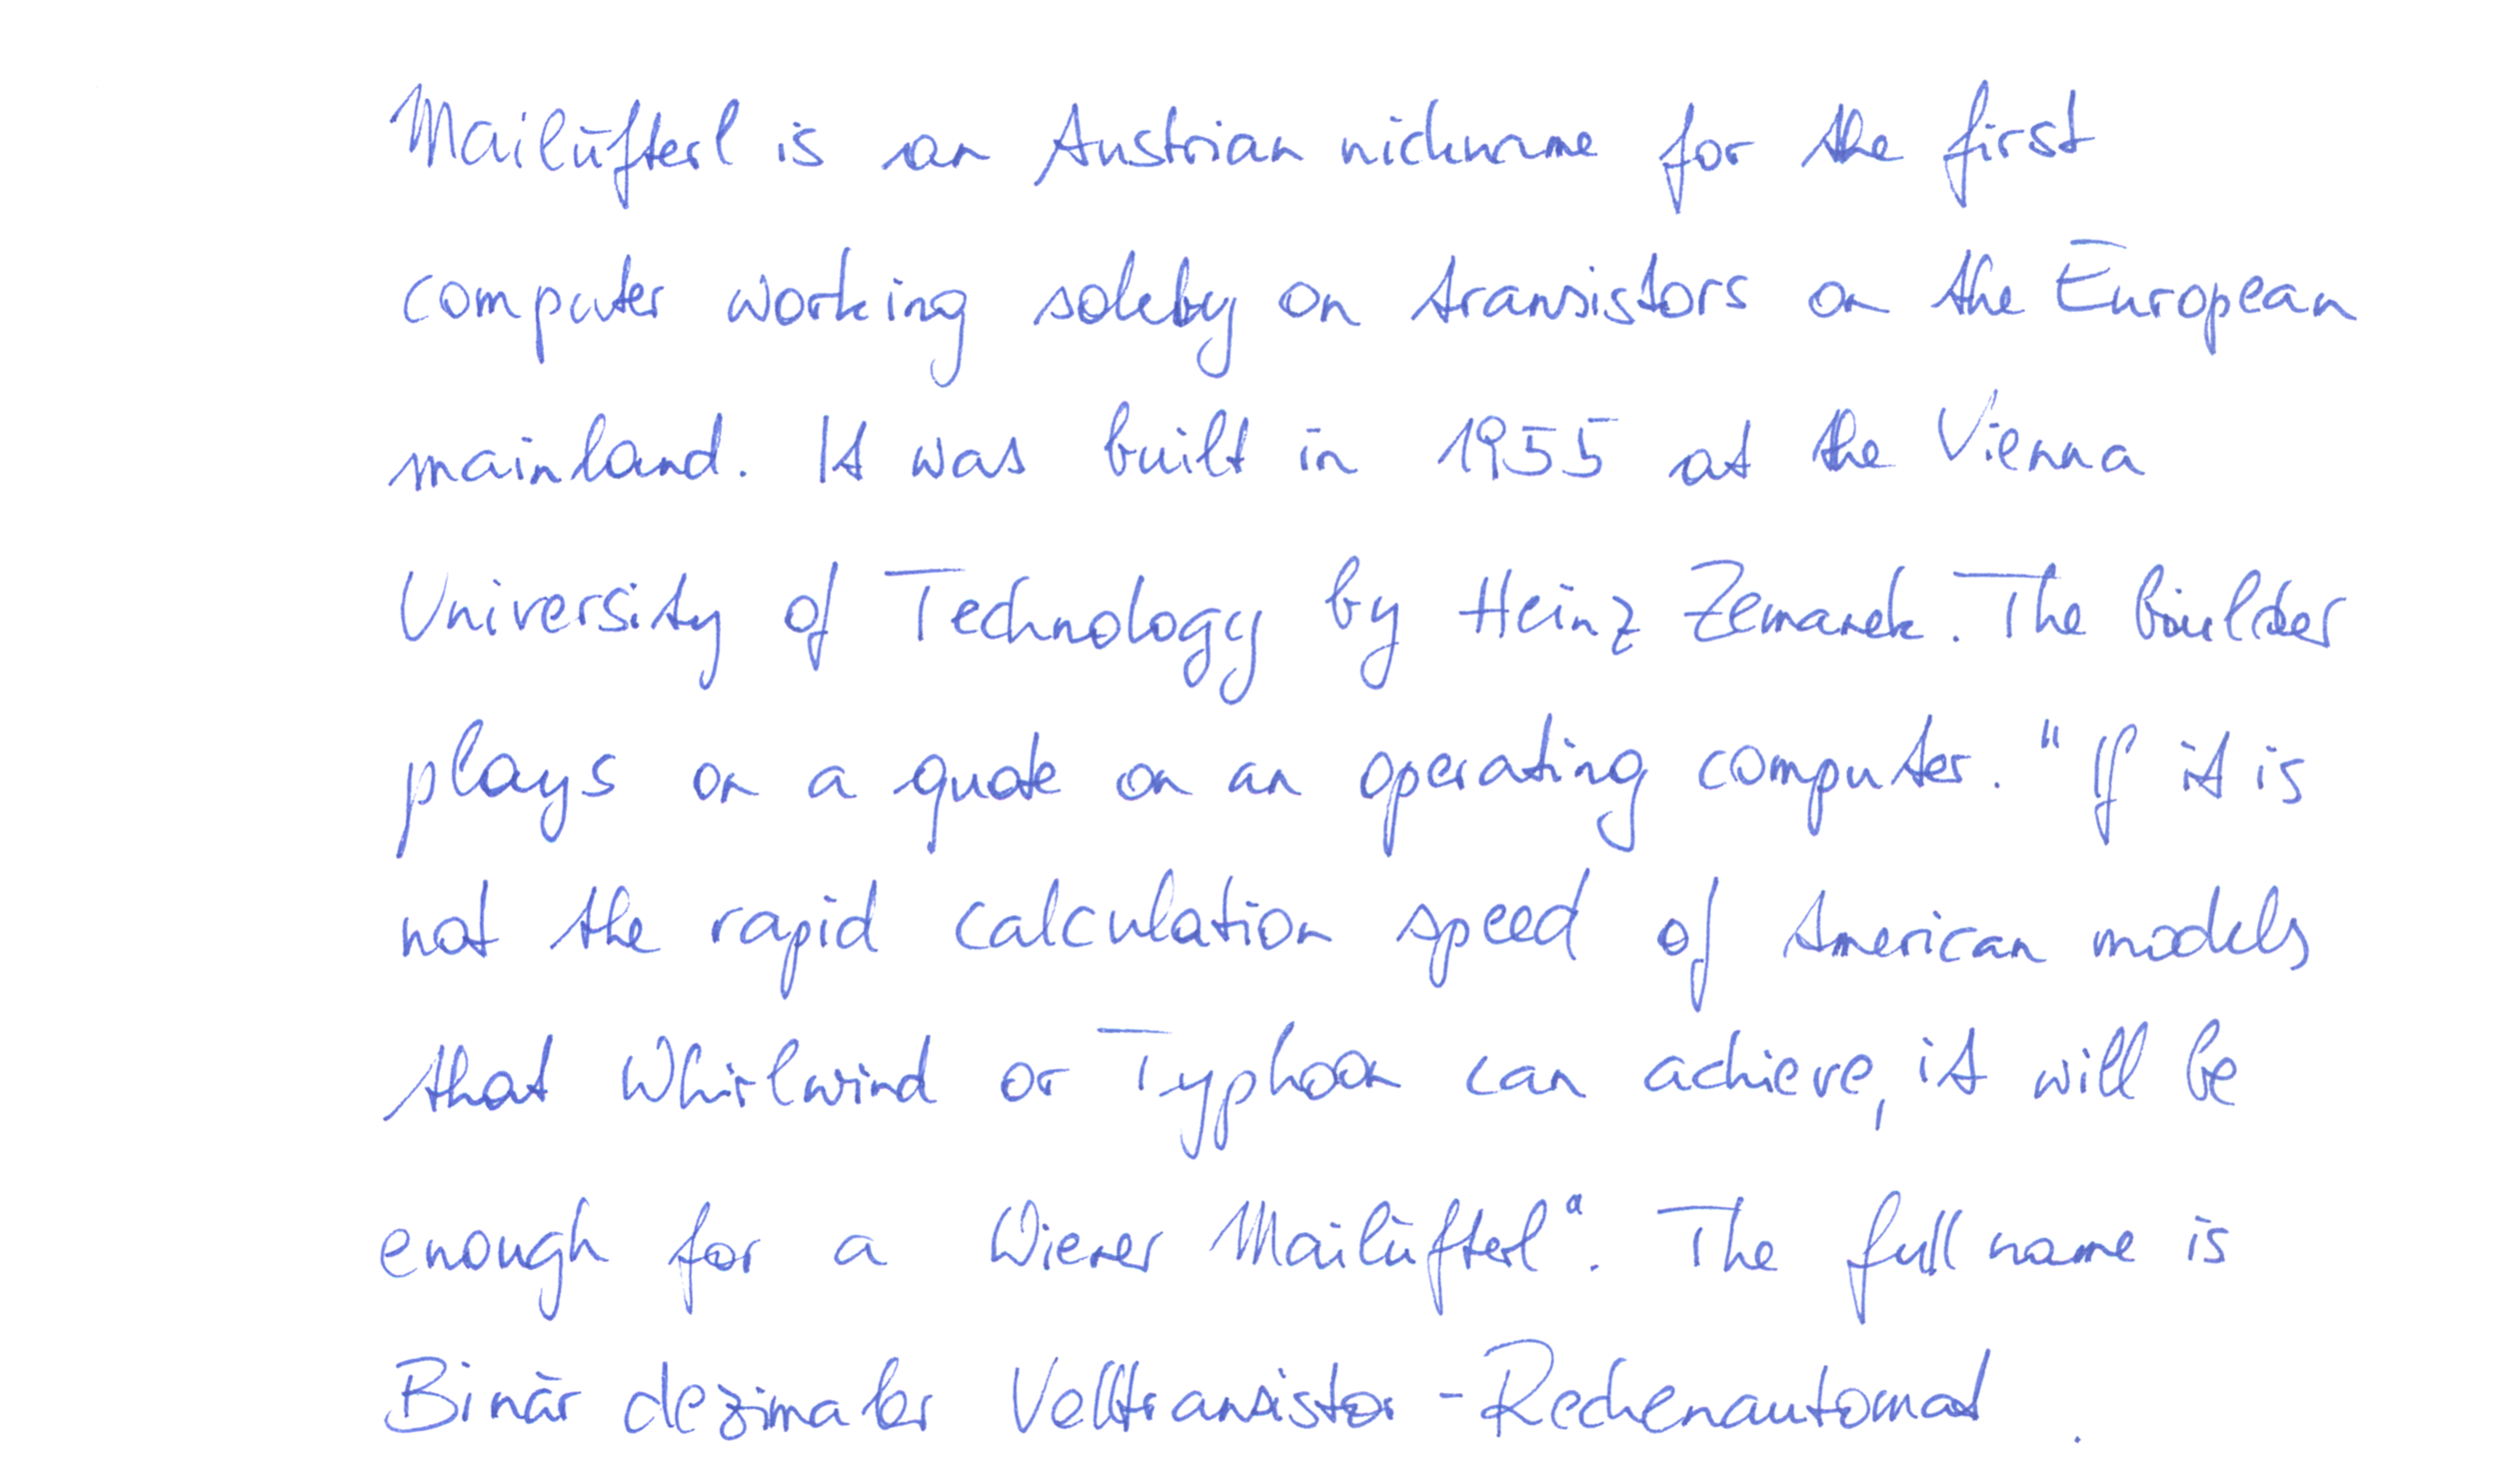 Mailüfterl is an Austrian nickname for the first
computer working solely on transistors on the European
mainland. It was built in 1955 at the Vienna
University of Technology by Heinz Zemanek. The builder
plays on a quote on an operating computer. "If it is
not the rapid calculation speed of American models
that Whirlwind or Typhoon can achieve, it will be
enough for a Wiener Mailüfterl". The full name is
Binär dezimaler Volltransistor-Rechenautomat.